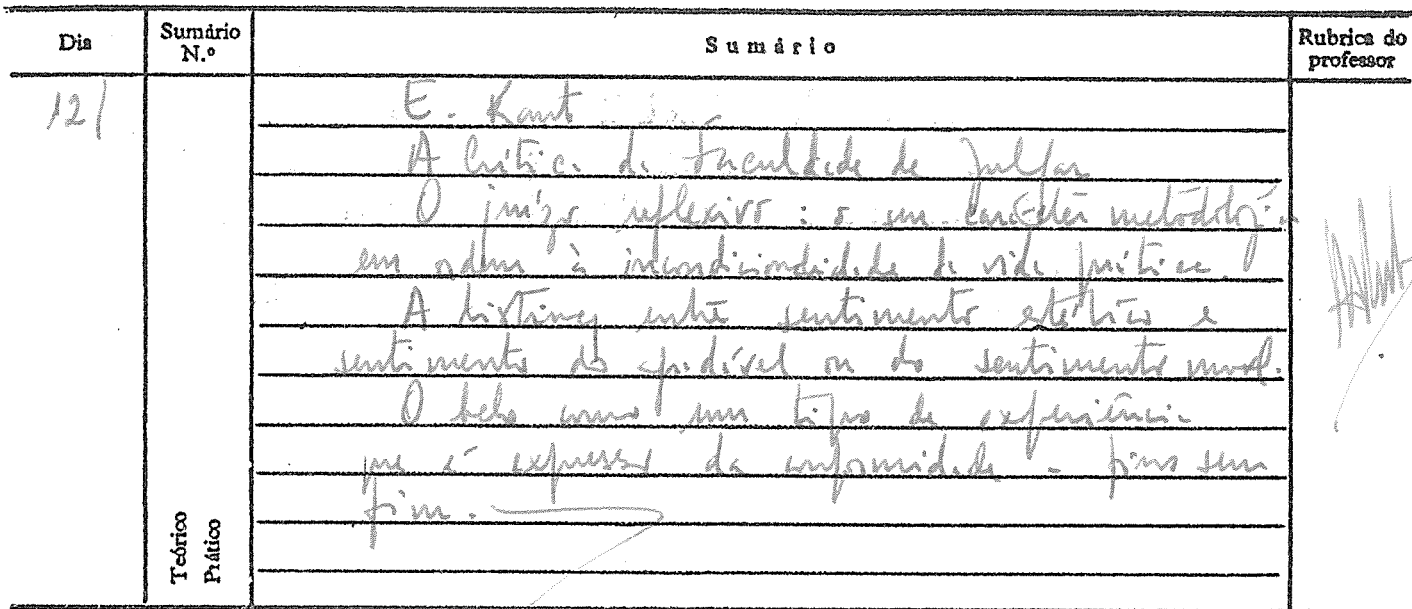 Dia
Sumário N.º
Sumário
Rubrica do professor
12/
E. Kant
A Crítica da Faculdade de Julgar
O juízo reflexivo: o seu carácter metodológico
em ordem à incondicionalidade da vida prática.
A distinção entre sentimento estético e
sentimento do agradável ou do sentimento moral.
O belo como um tipo de experiência
que é expressão da conformidade a fins sem
fim.
Teórico
Prático